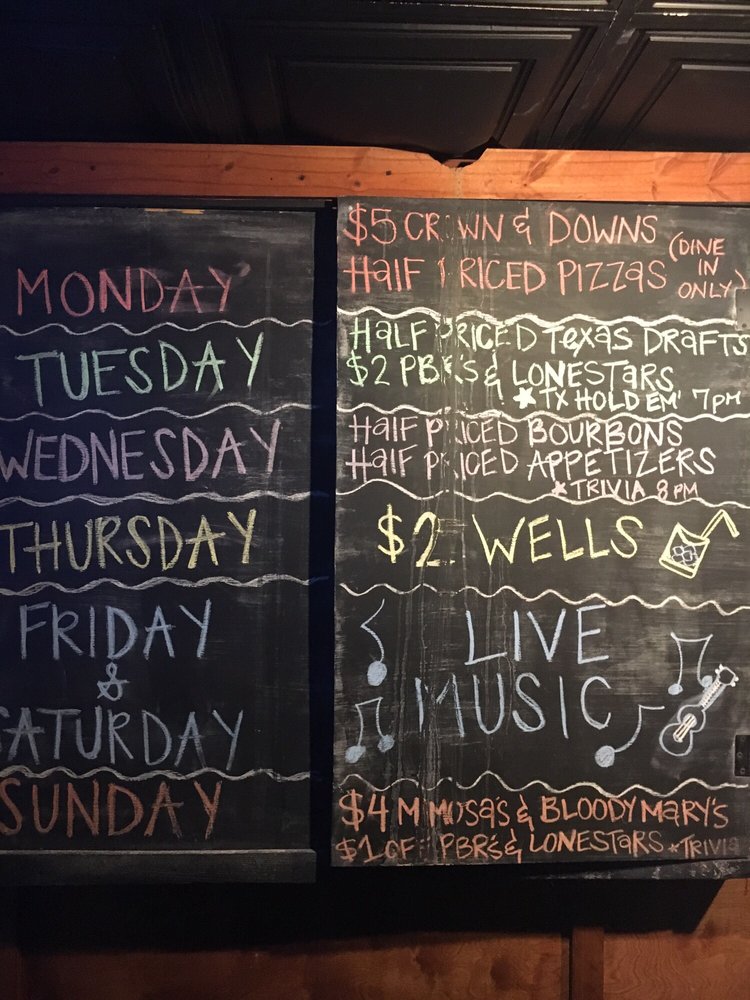 MONDAY
$5 CROWN & DOWNS
HALF PRICED PIZZAS (DINE IN ONLY)
TUESDAY
HALF PRICED TEXAS DRAFTS
$2 PBR'S & LONESTARS
★TX HOLD EM' 7PM
WEDNESDAY
HALF PRICED BOURBONS
HALF PRICED APPETIZERS
★TRIVIA 8PM
THURSDAY
$2 WELLS
FRIDAY
&
SATURDAY
LIVE
MUSIC
SUNDAY
$4 MIMOSA'S & BLOODY MARY'S
$1 OFF PBR'S & LONESTARS ★TRIVIA